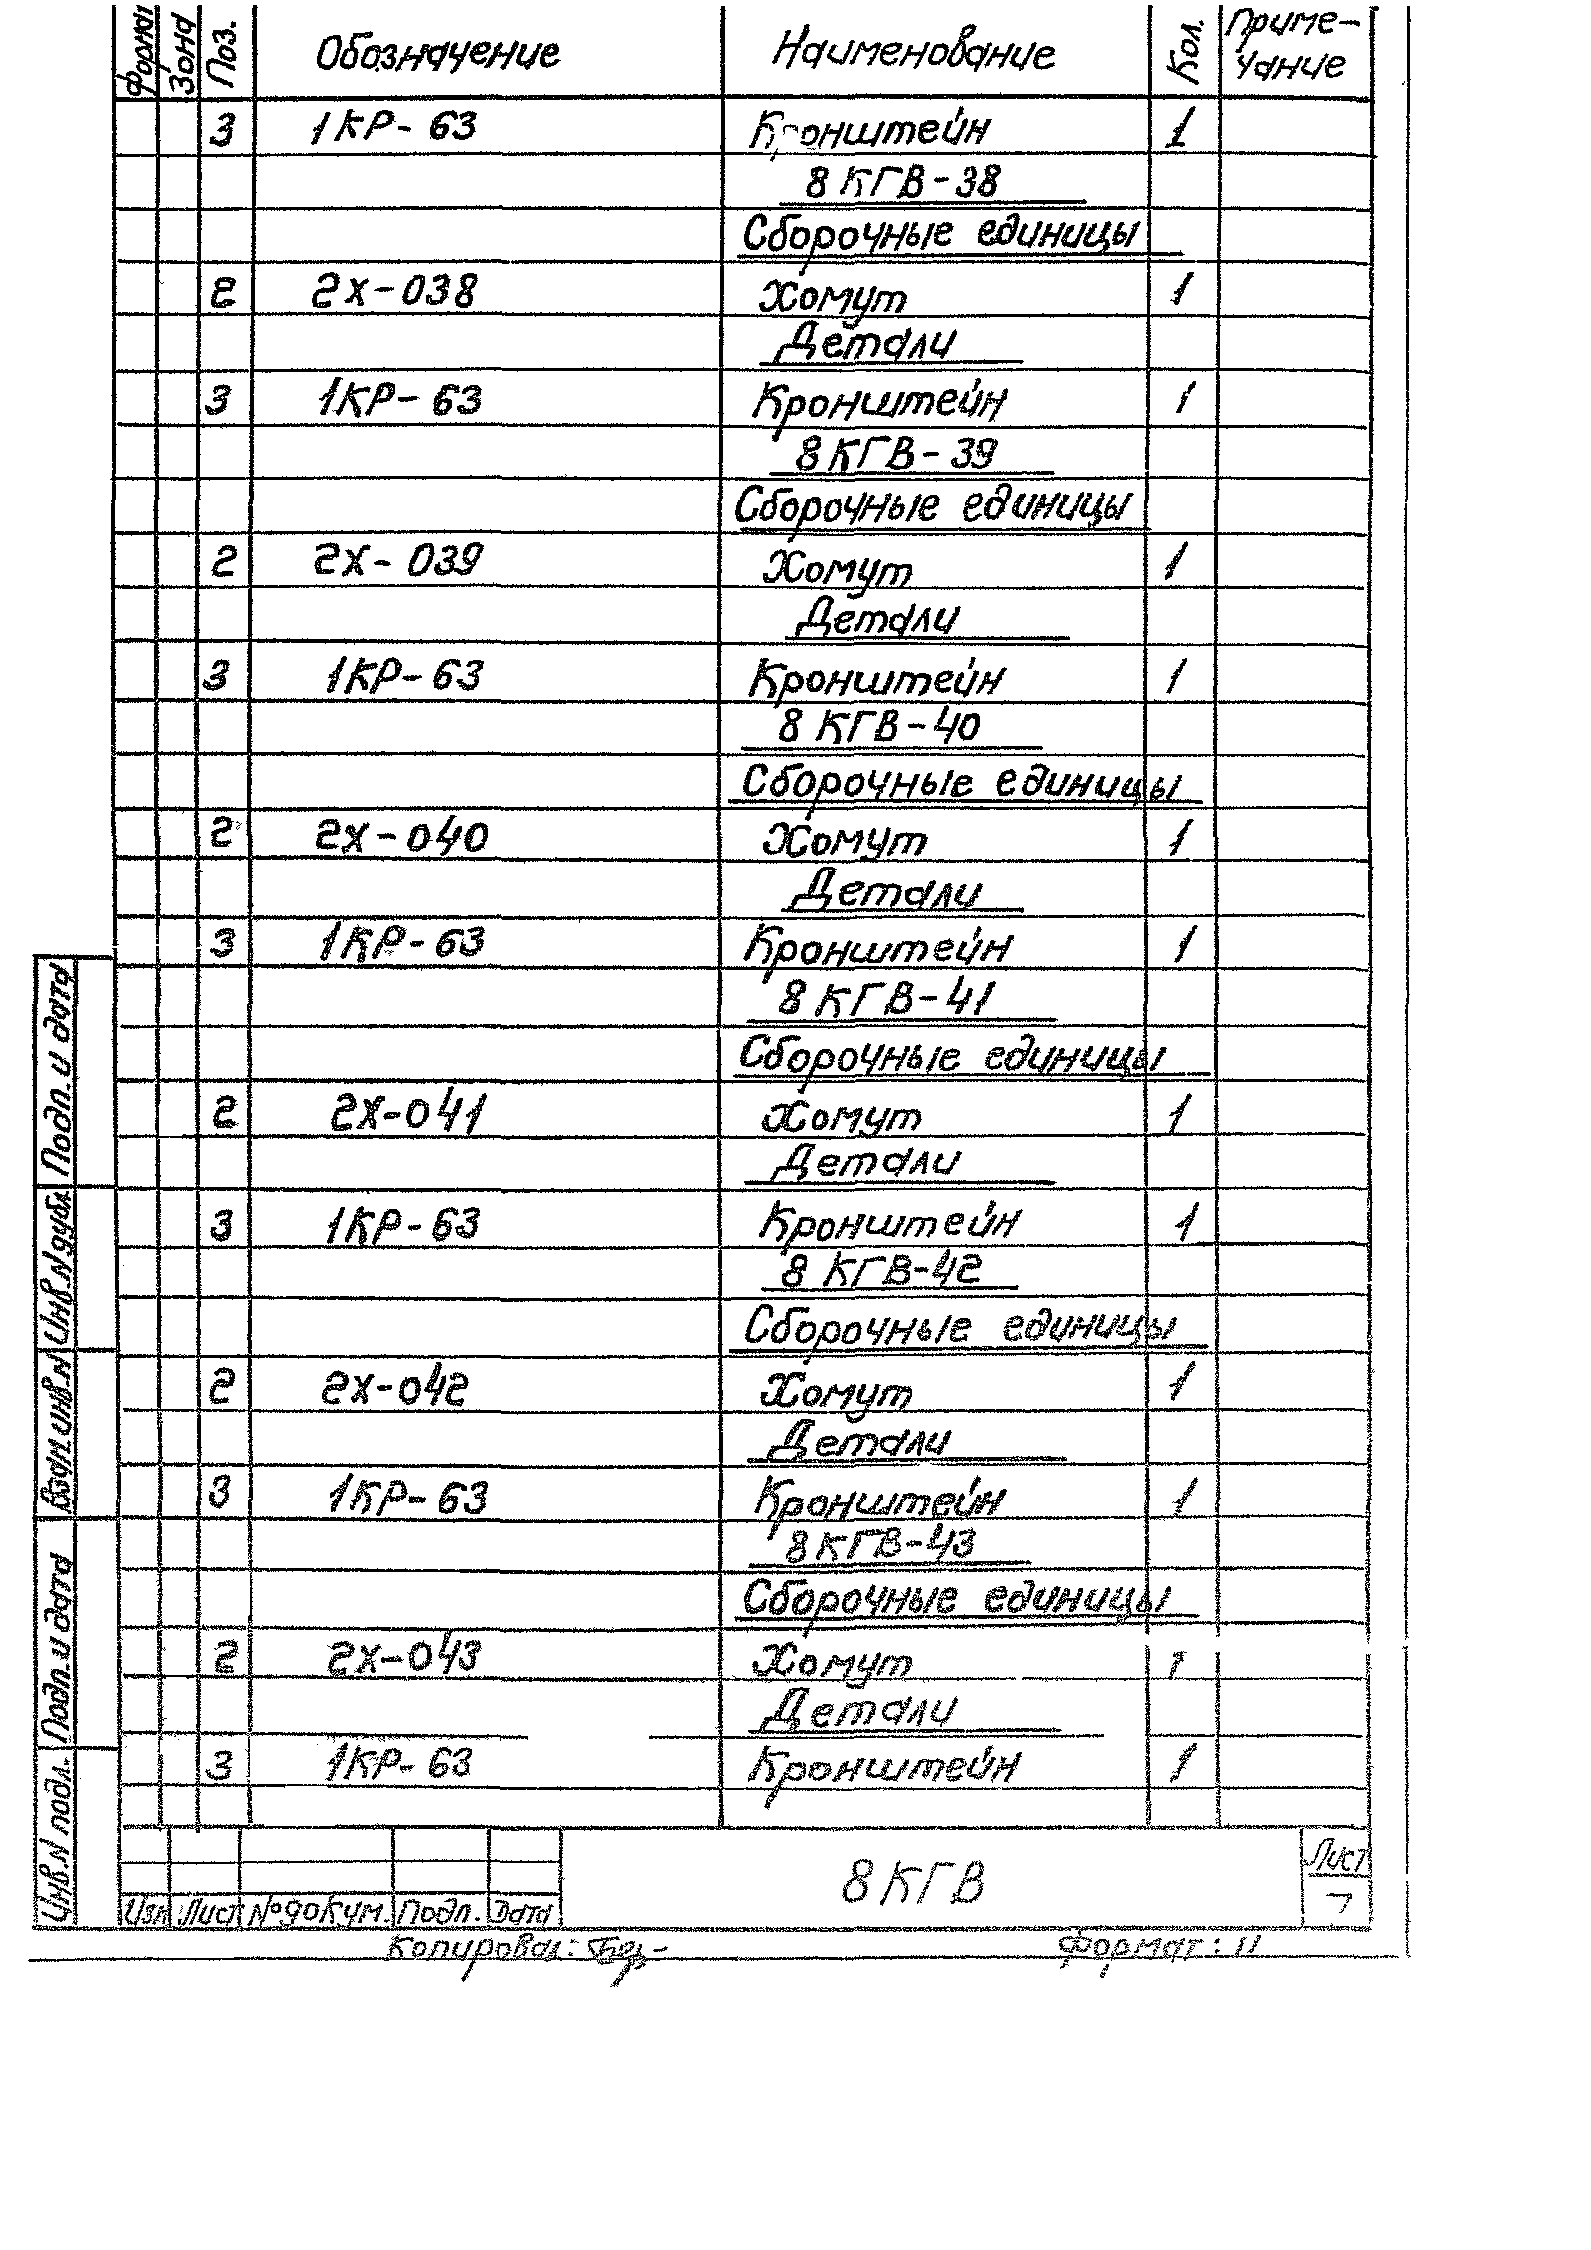 Формат Зона Поз. Обозначение Наименование Кол. Приме-
чание
3 1КР-63 Кронштейн 1
8КГВ-38
Сборочные единицы
2 2Х-038 Хомут 1
Детали
3 1КР-63 Кронштейн 1
8КГВ-39
Сборочные единицы
2 2Х-039 Хомут 1
Детали
3 1КР-63 Кронштейн 1
8КГВ-40
Сборочные единицы
2 2Х-040 Хомут 1
Детали
3 1КР-63 Кронштейн 1
8КГВ-41
Сборочные единицы
2 2Х-041 Хомут 1
Детали
3 1КР-63 Кронштейн 1
8КГВ-42
Сборочные единицы
2 2Х-042 Хомут 1
Детали
3 1КР-63 Кронштейн 1
8КГВ-43
Сборочные единицы
2 2Х-043 Хомут 1
Детали
3 1КР-63 Кронштейн 1
Подп. и дата
Инв.N дубл.
Взам.инв.N
Подп. и дата
Инв.N подл.
Изм Лист №докум. Подп. Дата
8КГВ
Лист
7
Копировал: Формат: 11